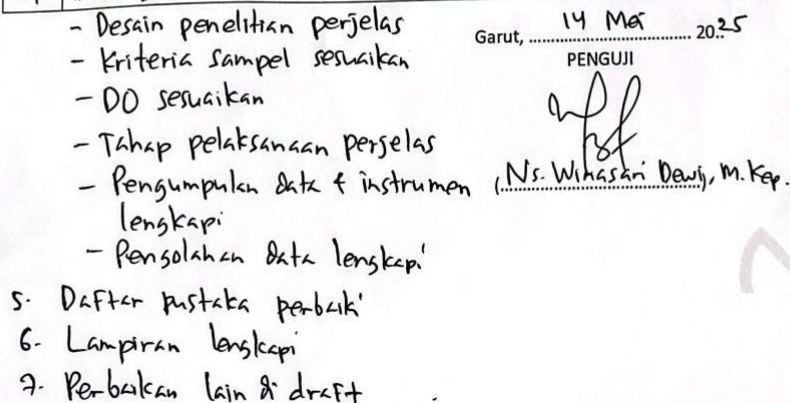 - Desain penelitian perjelas
- Kriteria sampel sesuaikan
- DO sesuaikan
- Tahap pelaksanaan perjelas
- Pengumpulan data & instrumen
lengkapi
- Pengolahan data lengkapi
5. Daftar pustaka perbaiki
6. Lampiran lengkapi
7. Perbaikan lain di draft
Garut, 14 Mei 2025
PENGUJI
(Ns. Winasari Dewi, M.Kep.